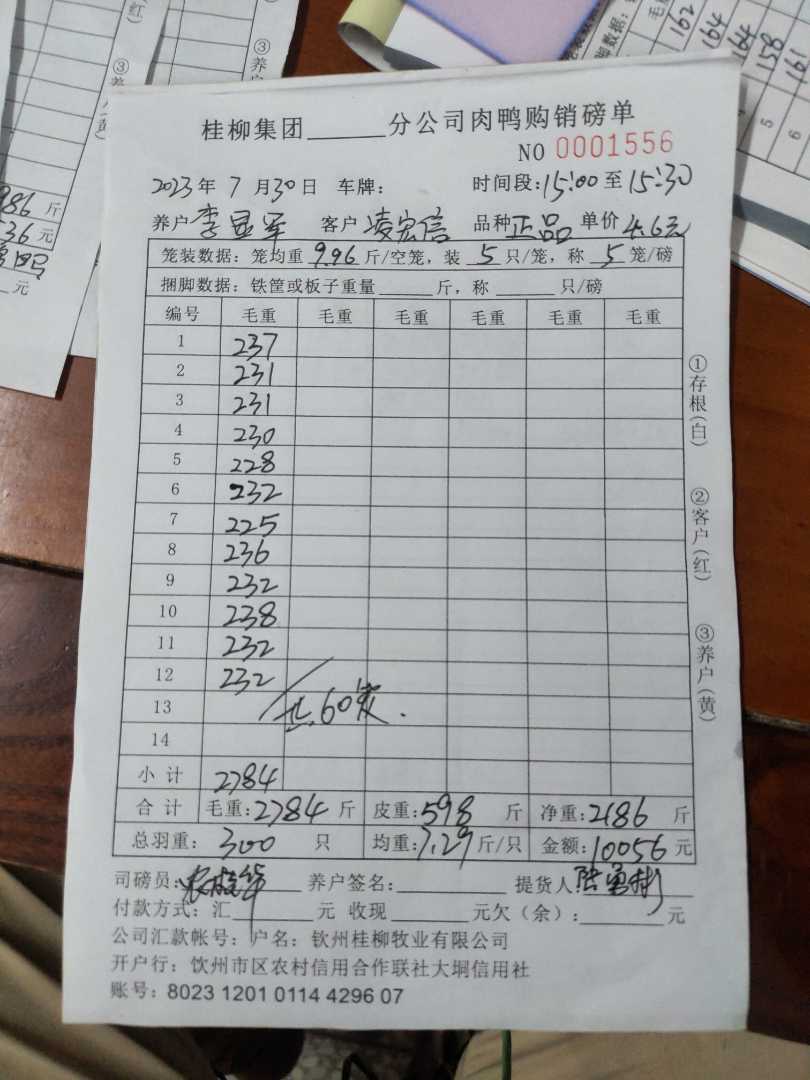 桂柳集团______分公司肉鸭购销磅单
NO 0001556
2023年 7 月30日 车牌: 时间段:15:00至15:30
养户 李显军 客户 凌宏信 品种 正品 单价 4.6元
笼装数据: 笼均重 9.96 斤/空笼, 装 5 只/笼, 称 5 笼/磅
捆脚数据: 铁筐或板子重量______斤, 称______只/磅
编号 毛重 毛重 毛重 毛重 毛重 毛重
1 237
2 231
3 231
4 230
5 228
6 232
7 225
8 236
9 232
10 238
11 232
12 232
13 共60笼.
14
小 计 2784
合 计 毛重:2784 斤 皮重:598 斤 净重:2186 斤
总羽重: 300 只 均重:7.29斤/只 金额:10056元
司磅员: 养户签名:________ 提货人陆勇彬
付款方式: 汇______元 收现______元欠(余):______元
公司汇款帐号: 户名: 钦州桂柳牧业有限公司
开户行: 饮州市区农村信用合作联社大垌信用社
账号: 8023 1201 0114 4296 07
①存根(白)
②客户(红)
③养户(黄)
(红)
③养
(黄)
986 斤
36 元
元
③养户
毛重
192
194
194
158
191
5
6